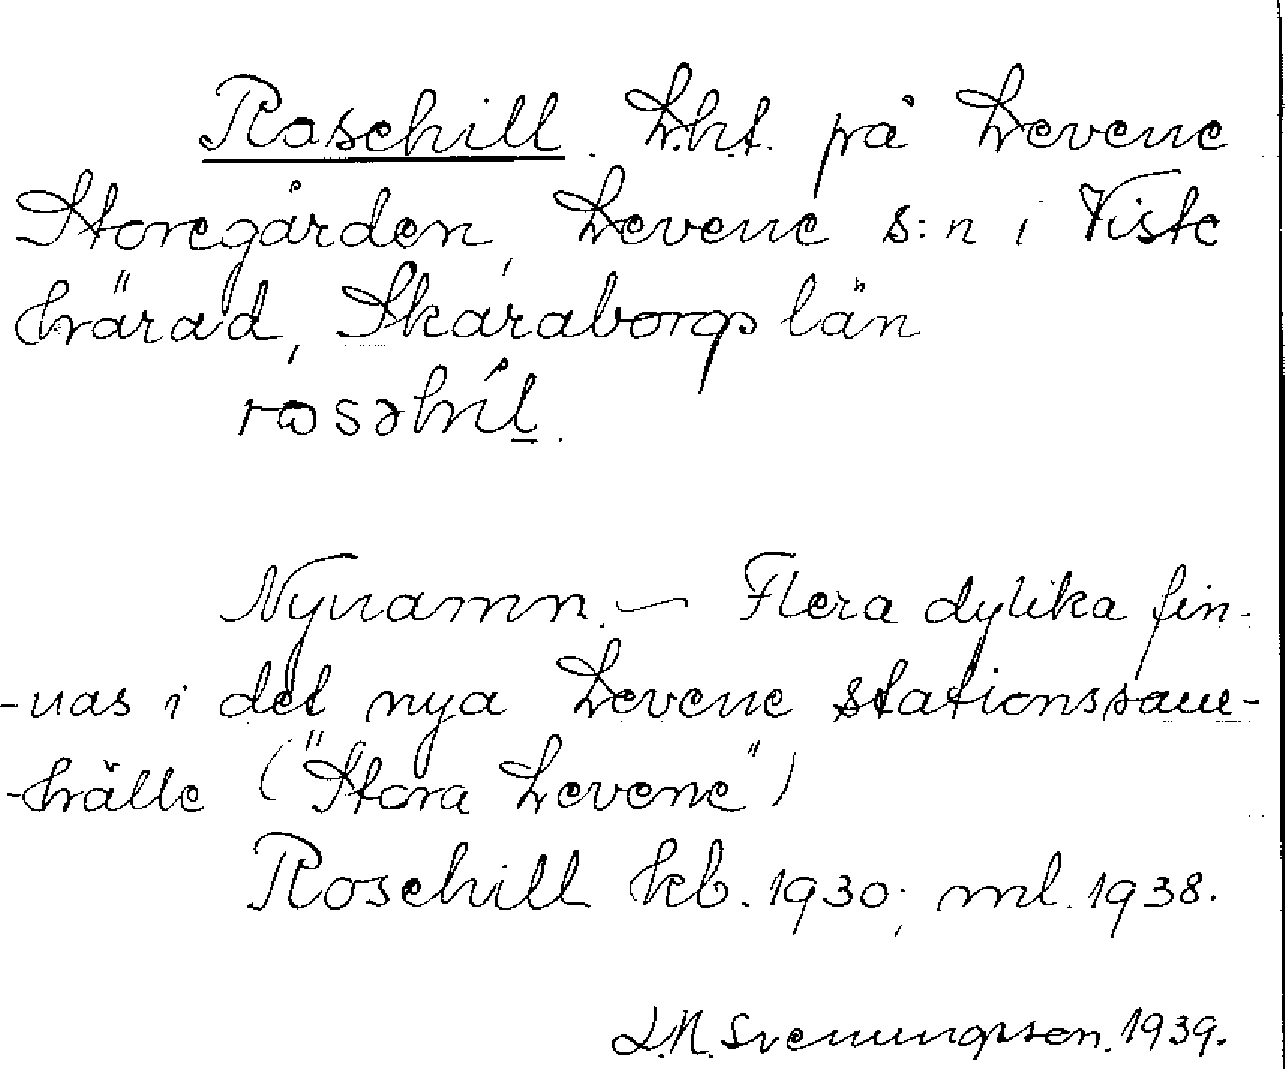 Rosehill. Lht. på Levene
Storegården, Levene s:n i Viste
härad, Skaraborgs län
rosəhíl.
Nynamn. — Flera dylika fin-
-nas i det nya Levene stationssam-
-hälle ("Stora Levene")
Rosehill kb. 1930; ml. 1938.
Svenungsson. 1939.